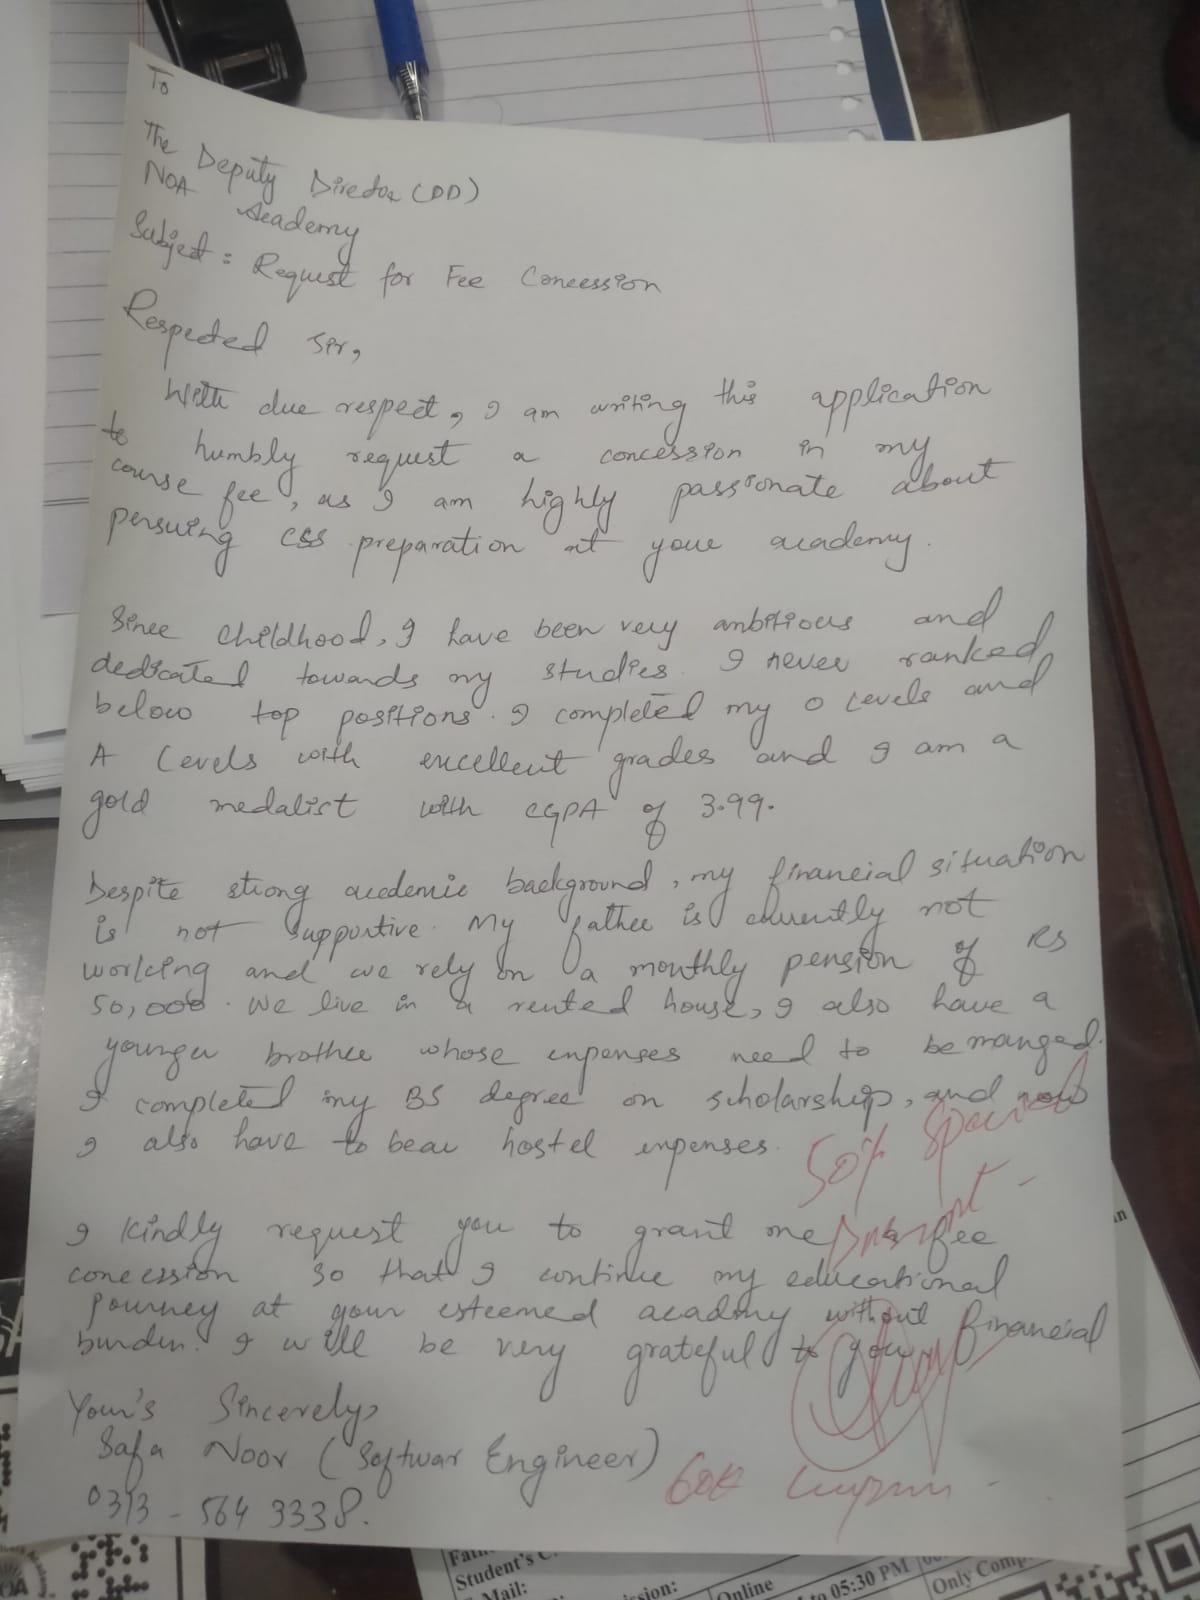 To
The Deputy Director (DD)
NOA Academy
Subject: Request for Fee Concession
Respected Sir,
With due respect, I am writing this application
to humbly request a concession in my
course fee, as I am highly passionate about
persuing CSS preparation at your academy.
Since childhood, I have been very ambitious and
dedicated towards my studies. I never ranked
below top positions. I completed my O Levels and
A Levels with excellent grades and I am a
gold medalist with CGPA of 3.99.
Despite strong acedemic background, my financial situation
is not supportive. My father is currently not
working and we rely on a monthly pension of RS
50,000. We live in a rented house, I also have a
younger brother whose expenses need to be manged.
I completed my BS degree on scholarship, and now
I also have to bear hostel expenses.
50% Special
Discount -
I Kindly request you to grant me fee
concession so that I continue my educational
journey at your esteemed academy without financial
burden. I will be very grateful to you
Your's Sincerely,
Safa Noor (Softwar Engineer)
0313-564 3338.
60K
Student's
Mail:
ssion:
Online
to 05:30 PM
Only Comp